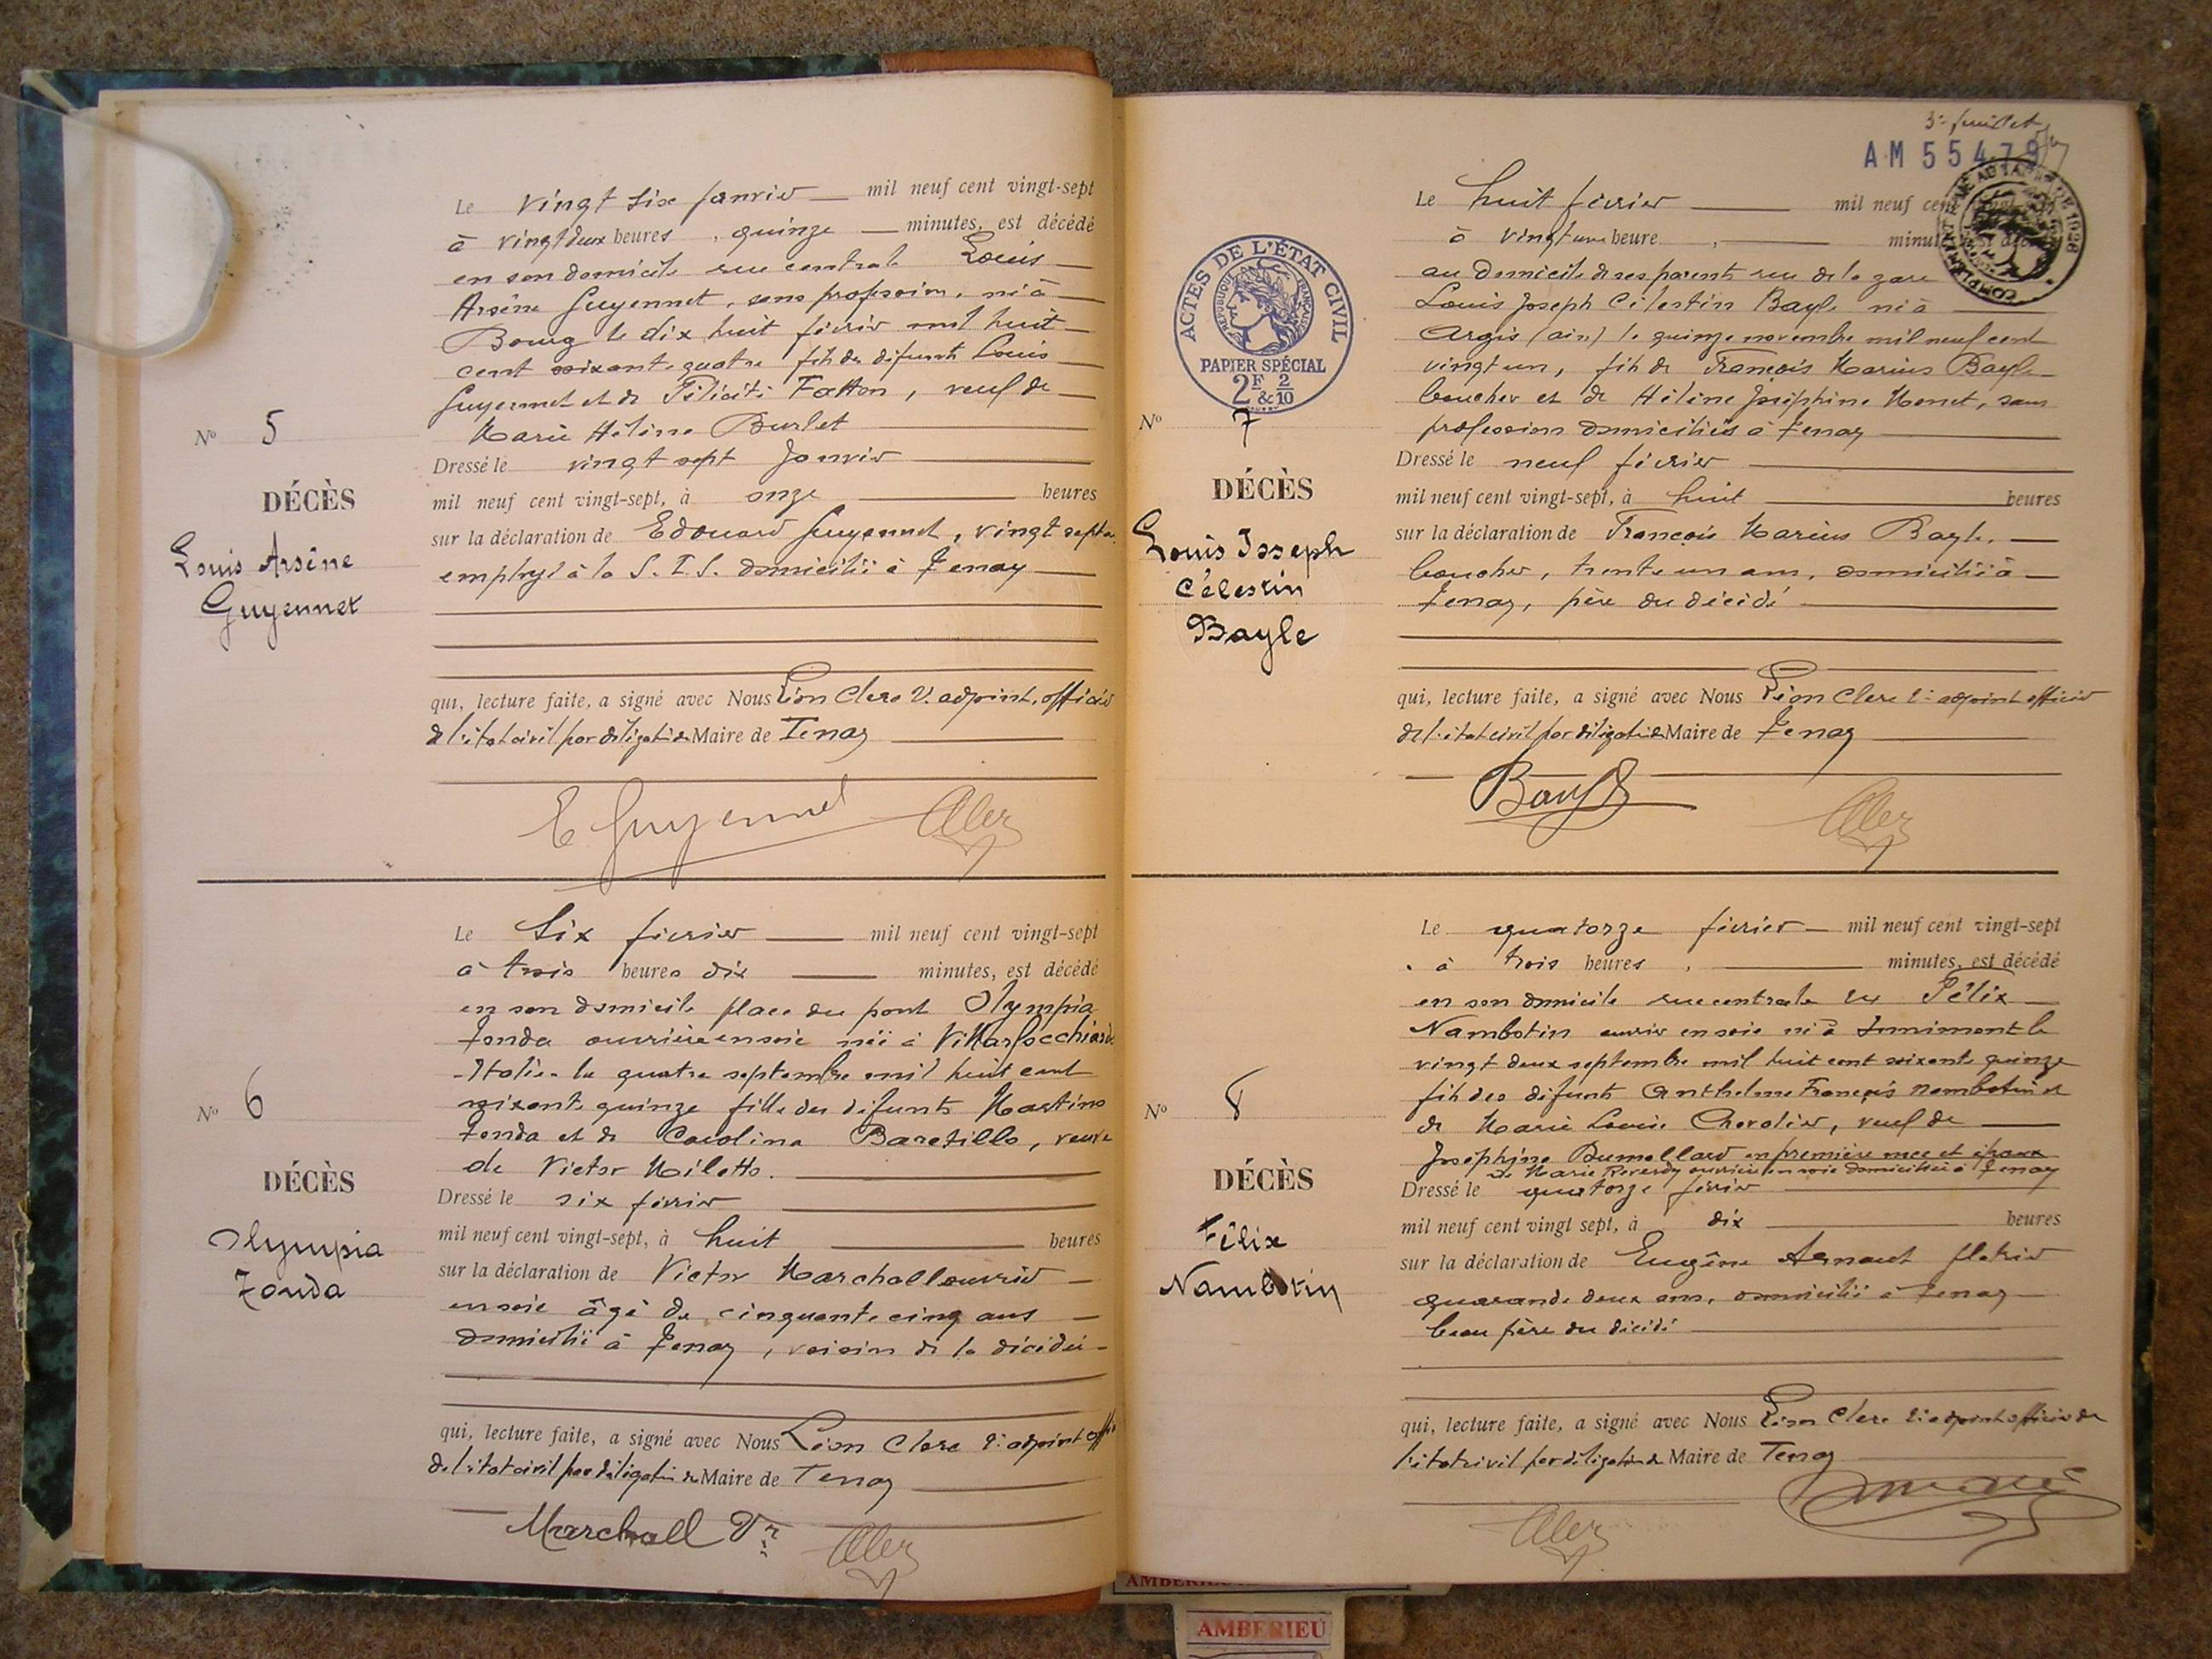 Le vingt six janvier mil neuf cent vingt-sept
à vingt deux heures, quinze minutes, est décédé
en son domicile rue centrale Louis
Arsène Guyennet, sans profession, né à
Bourg le dix huit février mil huit
cent soixante quatre fils des défunts Louis
Guyennet et de Félicité Fatton, veuf de
Marie Hélène Burlet
Nº 5
DÉCÈS
Louis Arsène
Guyennet
Dressé le vingt sept Janvier
mil neuf cent vingt-sept, à onze heures
sur la déclaration de Edouard Guyennet, vingt sept
employé à la S.I.S. domicilié à Tenay
qui, lecture faite, a signé avec Nous Léon Clerc adjoint, officier
de l'état civil par délégation Maire de Tenay
E Guyennet
Le Six février mil neuf cent vingt-sept
à trois heures dix minutes, est décédé
en son domicile place du pont Olympia
Tonda ouvrière en soie née à Villarfocchiardo
-Italie- le quatre septembre mil huit cent
soixante quinze fille des défunts Martino
Tonda et de Carolina Baretillo, veuve
de Victor Miletto.
Nº 6
DÉCÈS
Olympia
Tonda
Dressé le six février
mil neuf cent vingt-sept, à huit heures
sur la déclaration de Victor Marchall ouvrier
en soie âgé de cinquante cinq ans
domicilié à Tenay, voisin de la décédée
qui, lecture faite, a signé avec Nous Léon Clerc 2e adjoint
de l'état civil par délégation Maire de Tenay
Marchall Vr
3e feuillet
AM 55479
Le huit février mil neuf cent
à vingt une heure, minutes
au domicile de ses parents rue de la gare
Louis Joseph Célestin Bayle né à
Argis (ain) le quinze novembre mil neuf cent
vingt un, fils de François Marius Bayle
boucher et de Hélène Joséphine Monet, sans
profession domiciliés à Tenay
ACTES DE L'ÉTAT CIVIL
RÉPUBLIQUE FRANÇAISE
PAPIER SPÉCIAL
2F & 2/10
Nº 7
DÉCÈS
Louis Joseph
Célestin
Bayle
Dressé le neuf février
mil neuf cent vingt-sept, à huit heures
sur la déclaration de François Marius Bayle,
boucher, trente un ans, domicilié à
Tenay, père du décédé
qui, lecture faite, a signé avec Nous Léon Clerc 2e adjoint officier
de l'état civil par délégation Maire de Tenay
Bayle
Le quatorze février mil neuf cent vingt-sept
à trois heures, minutes, est décédé
en son domicile rue centrale Félix
Nambotin ouvrier en soie né à Innimont le
vingt deux septembre mil huit cent soixante quinze
fils des défunts Anthelme François Nambotin et
de Marie Louise Chevolier, veuf de
Joséphine Dumollard en première et époux
de Marie Reverdy ouvrière en soie domiciliée à Tenay
Nº 8
DÉCÈS
Félix
Nambotin
Dressé le quatorze février
mil neuf cent vingt sept, à dix heures
sur la déclaration de Eugène Arnaut
quarante deux ans, domicilié à Tenay
beau frère du décédé
qui, lecture faite, a signé avec Nous Léon Clerc 2e adjoint officier de
l'état civil par délégation Maire de Tenay
AMBERIEU